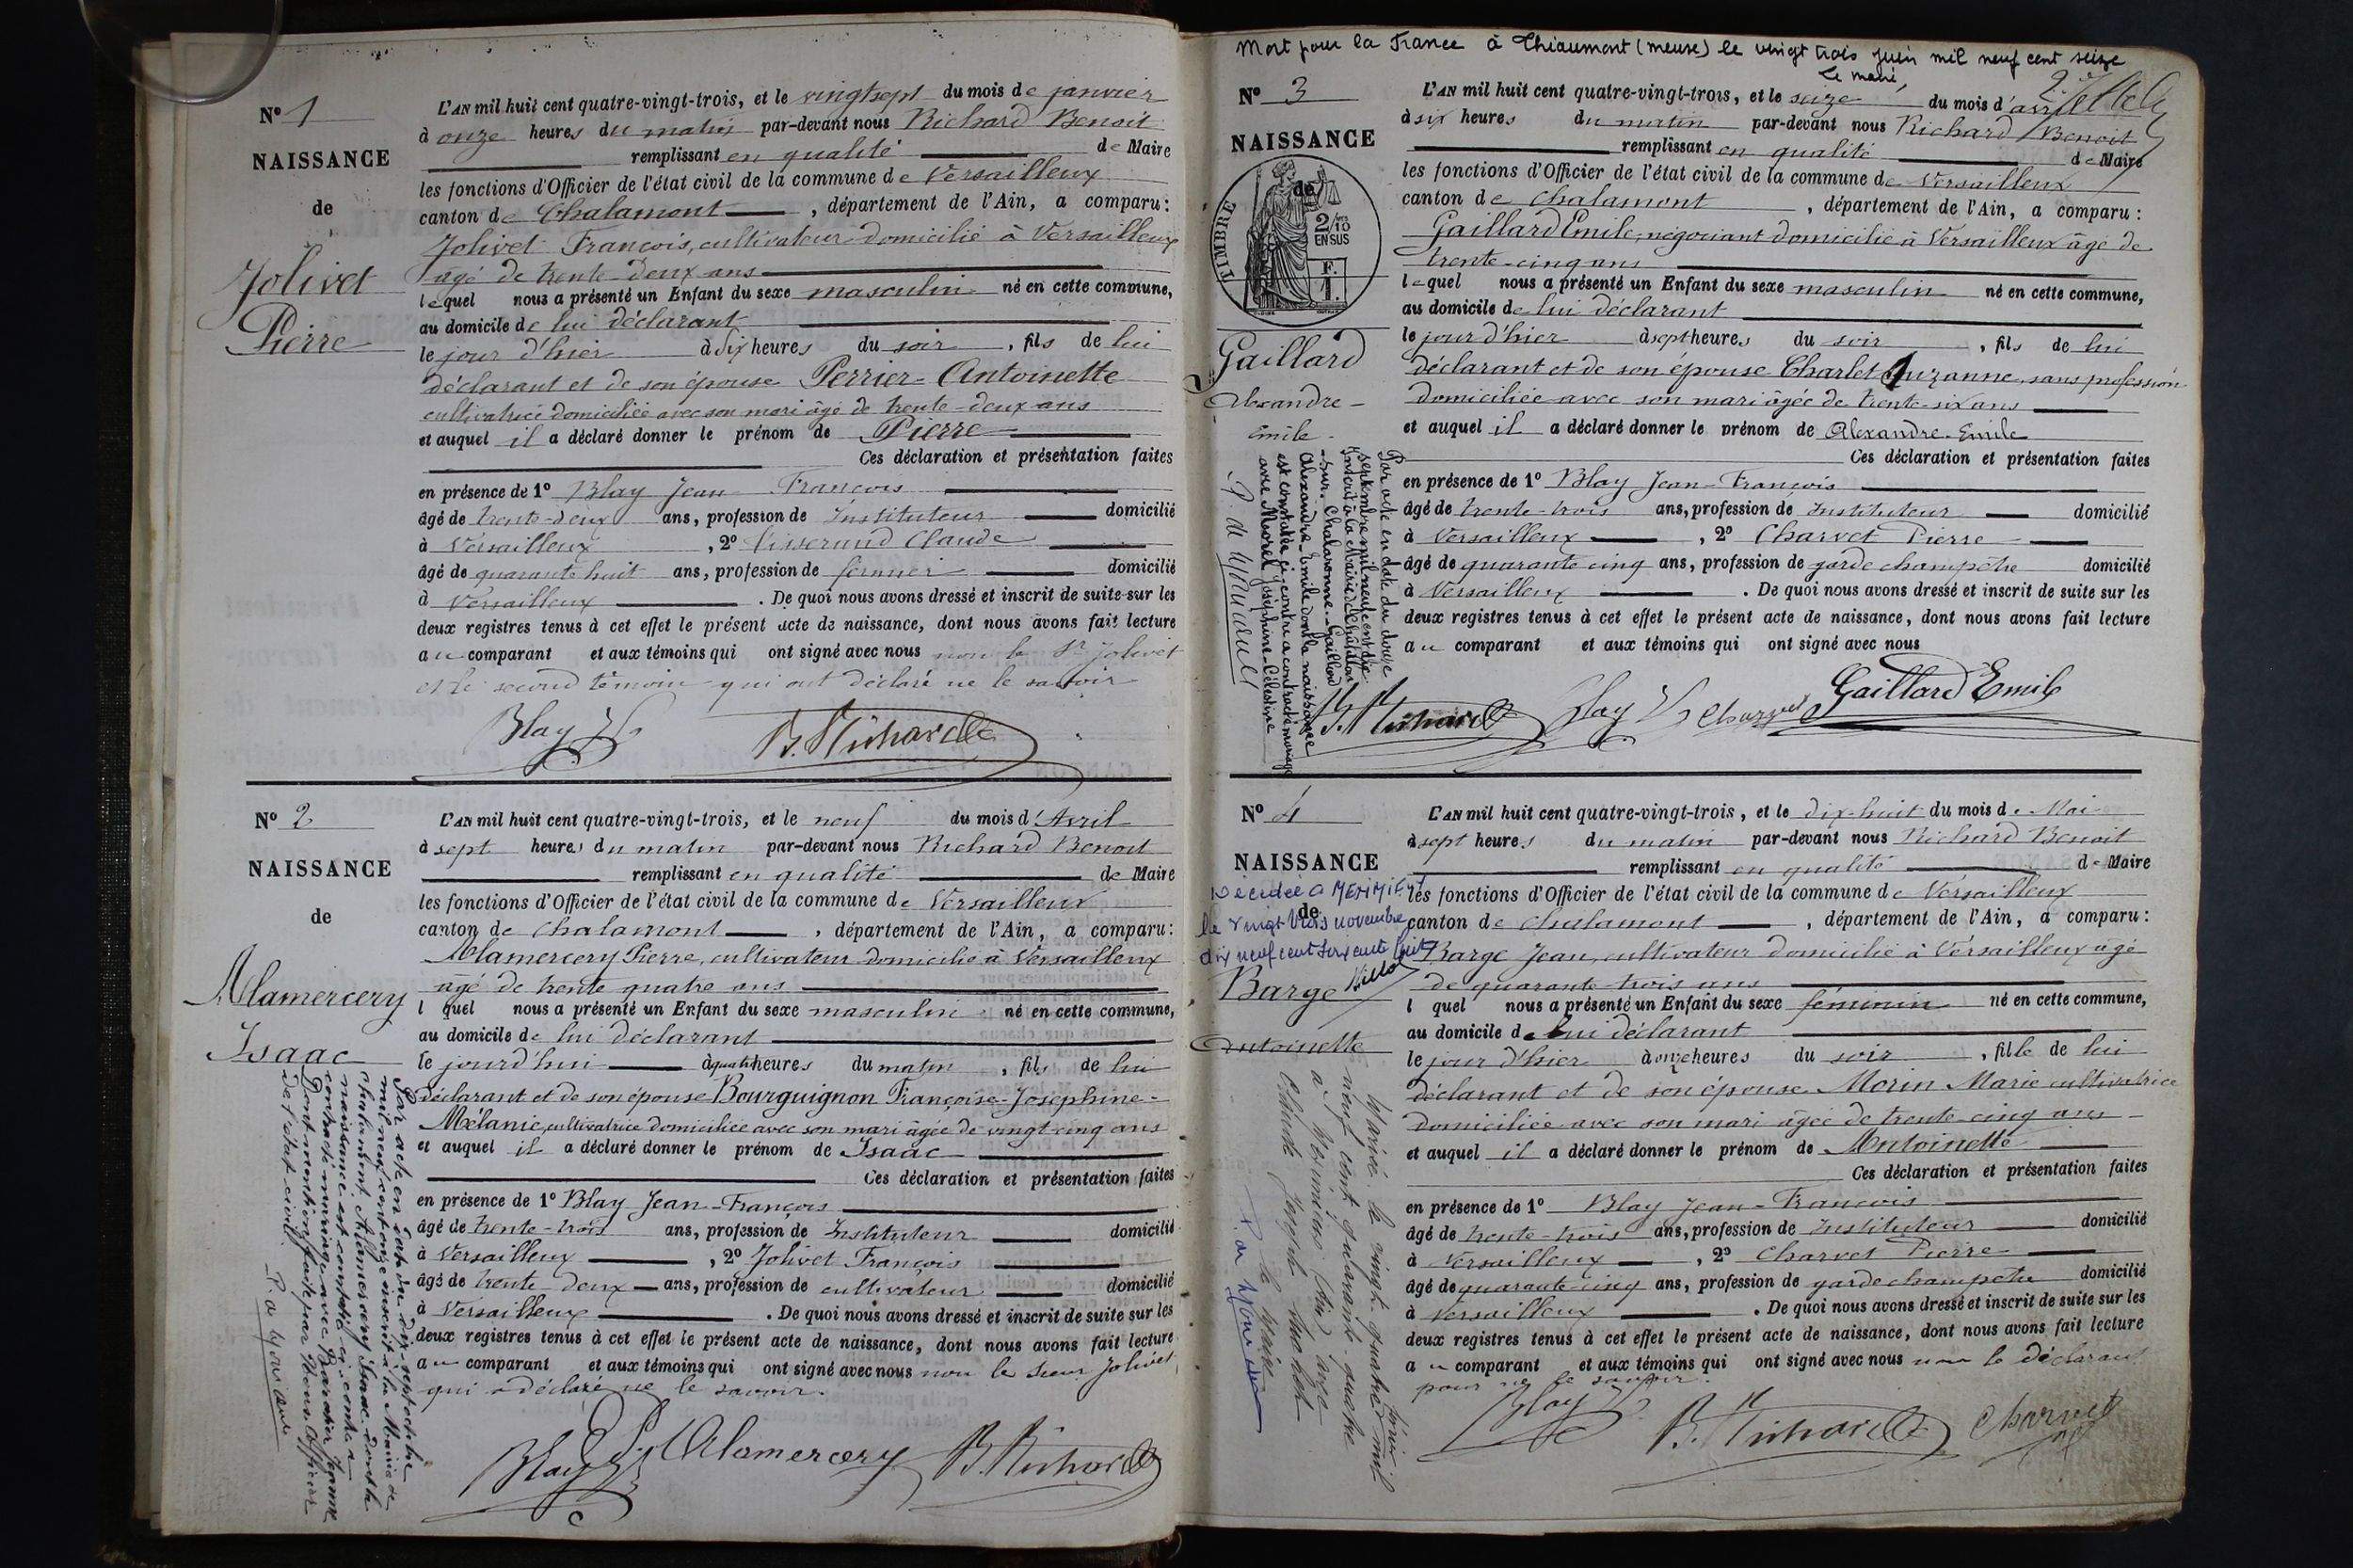 Nº 1
NAISSANCE
de
Jolivet
Pierre
L'AN mil huit cent quatre-vingt-trois, et le vingt sept du mois de janvier
à onze heures du matin par-devant nous Richard Benoit
remplissant en qualité de Maire
les fonctions d'Officier de l'état civil de la commune de Versailleux
canton de Chalamont, département de l'Ain, a comparu:
Jolivet François, cultivateur domicilié à Versailleux
âgé de trente-deux ans
lequel nous a présenté un Enfant du sexe masculin né en cette commune,
au domicile de lui déclarant
le jour d'hier à dix heures du soir, fils de lui
déclarant et de son épouse Perrier Antoinette
cultivatrice domiciliée avec son mari âgé de trente-deux ans
et auquel il a déclaré donner le prénom de Pierre
Ces déclaration et présentation faites
en présence de 1º Blay Jean François
âgé de trente-deux ans, profession de Instituteur domicilié
à Versailleux, 2º Tisserand Claude
âgé de quarante huit ans, profession de fermier domicilié
à Versailleux. De quoi nous avons dressé et inscrit de suite sur les
deux registres tenus à cet effet le présent acte de naissance, dont nous avons fait lecture
au comparant et aux témoins qui ont signé avec nous non le Sr Jolivet
et le second témoin qui ont déclaré ne le savoir
Blay B. Richard
Nº 2
NAISSANCE
de
Alamercery
Isaac
Par acte en date du dix-sept octobre
mil neuf cent onze inscrit à la Mairie de
Chalamont Alamercery Isaac dont la
naissance est constatée ci-contre a
contracté mariage avec Baratier Jeanne
Dont mention faite par Nous, Officier
de l'état-civil
L'AN mil huit cent quatre-vingt-trois, et le neuf du mois d'Avril
à sept heures du matin par-devant nous Richard Benoit
remplissant en qualité de Maire
les fonctions d'Officier de l'état civil de la commune de Versailleux
canton de Chalamont, département de l'Ain, a comparu:
Alamercery Pierre, cultivateur domicilié à Versailleux
âgé de trente quatre ans
l quel nous a présenté un Enfant du sexe masculin né en cette commune,
au domicile de lui déclarant
le jourd'hui à quatre heures du matin, fils de lui
déclarant et de son épouse Bourguignon Françoise-Josephine-
Mélanie, cultivatrice domiciliée avec son mari âgée de vingt cinq ans
et auquel il a déclaré donner le prénom de Isaac
Ces déclaration et présentation faites
en présence de 1º Blay Jean-François
âgé de trente-trois ans, profession de Instituteur domicilié
à Versailleux, 2º Jolivet François
âgé de trente deux ans, profession de cultivateur domicilié
à Versailleux. De quoi nous avons dressé et inscrit de suite sur les
deux registres tenus à cet effet le présent acte de naissance, dont nous avons fait lecture
au comparant et aux témoins qui ont signé avec nous non le sieur Jolivet
qui a déclaré ne le savoir.
Blay P. Alamercery B. Richard
Mort pour la France à Thiaumont (Meuse) le vingt trois juin mil neuf cent seize
Le maire,
Nº 3
NAISSANCE
de
TIMBRE
2/10
EN SUS
F.
1.
Gaillard
Alexandre-
Emile.
Par acte en date du douze
septembre mil neuf cent dix
inscrit à la Mairie de Châtillon
-sur-Chalaronne, Gaillard
Alexandre-Emile dont la naissance
est constatée ci-contre a contracté mariage
avec Morel Joséphine Célestine
L'AN mil huit cent quatre-vingt-trois, et le seize du mois d'avril
à six heures du matin par-devant nous Richard Benoit
remplissant en qualité de Maire
les fonctions d'Officier de l'état civil de la commune de Versailleux
canton de Chalamont, département de l'Ain, a comparu:
Gaillard Emile, négociant domicilié à Versailleux âgé de
trente-cinq ans
lequel nous a présenté un Enfant du sexe masculin né en cette commune,
au domicile de lui déclarant
le jour d'hier à sept heures du soir, fils de lui
déclarant et de son épouse Charlet Suzanne, sans profession
domiciliée avec son mari âgée de trente-six ans
et auquel il a déclaré donner le prénom de Alexandre-Emile
Ces déclaration et présentation faites
en présence de 1º Blay Jean-François
âgé de trente-trois ans, profession de Instituteur domicilié
à Versailleux, 2º Charvet Pierre
âgé de quarante cinq ans, profession de garde champêtre domicilié
à Versailleux. De quoi nous avons dressé et inscrit de suite sur les
deux registres tenus à cet effet le présent acte de naissance, dont nous avons fait lecture
au comparant et aux témoins qui ont signé avec nous
B. Richard Blay Charvet Gaillard Emile
Nº 4
NAISSANCE
de
Décédée à
le vingt trois novembre
dix neuf cent soixante huit
Barge
Antoinette
Mariée le vingt-quatre juin mil
neuf cent quarante quatre
à avec
Claude Joseph
le Maire
L'AN mil huit cent quatre-vingt-trois, et le dix-huit du mois de Mai
à sept heures du matin par-devant nous Richard Benoit
remplissant en qualité de Maire
les fonctions d'Officier de l'état civil de la commune de Versailleux
canton de Chalamont, département de l'Ain, a comparu:
Barge Jean, cultivateur domicilié à Versailleux âgé
de quarante-trois ans
l quel nous a présenté un Enfant du sexe féminin né en cette commune,
au domicile de lui déclarant
le jour d'hier à onze heures du soir, fille de lui
déclarant et de son épouse Morin Marie cultivatrice
domiciliée avec son mari âgée de trente cinq ans
et auquel il a déclaré donner le prénom de Antoinette
Ces déclaration et présentation faites
en présence de 1º Blay Jean-François
âgé de trente-trois ans, profession de Instituteur domicilié
à Versailleux, 2º Charvet Pierre
âgé de quarante-cinq ans, profession de garde champêtre domicilié
à Versailleux. De quoi nous avons dressé et inscrit de suite sur les
deux registres tenus à cet effet le présent acte de naissance, dont nous avons fait lecture
au comparant et aux témoins qui ont signé avec nous non le déclarant
pour ne le savoir.
Blay B. Richard Charvet